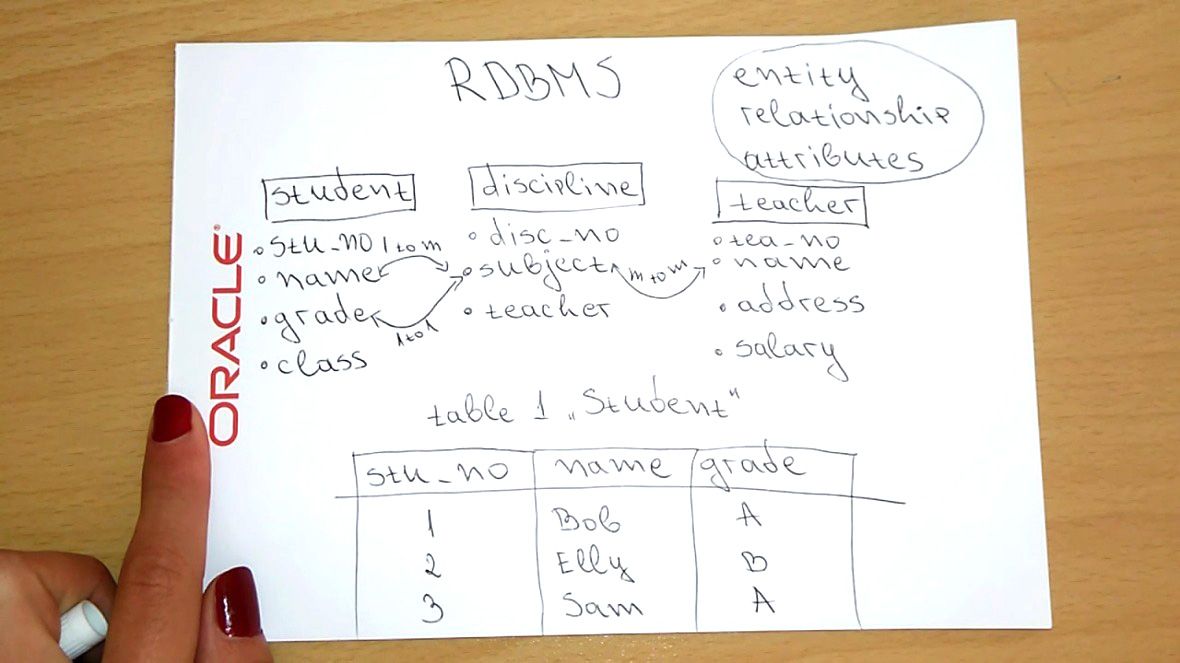 RDBMS
entity
relationship
attributes
student
• stu_no
• name
• grade
• class
1 to m
1 to 1
discipline
• disc_no
• subject
• teacher
m to m
teacher
• tea_no
• name
• address
• salary
ORACLE®
table 1 „Student“
stu_no name grade
1 Bob A
2 Elly B
3 Sam A